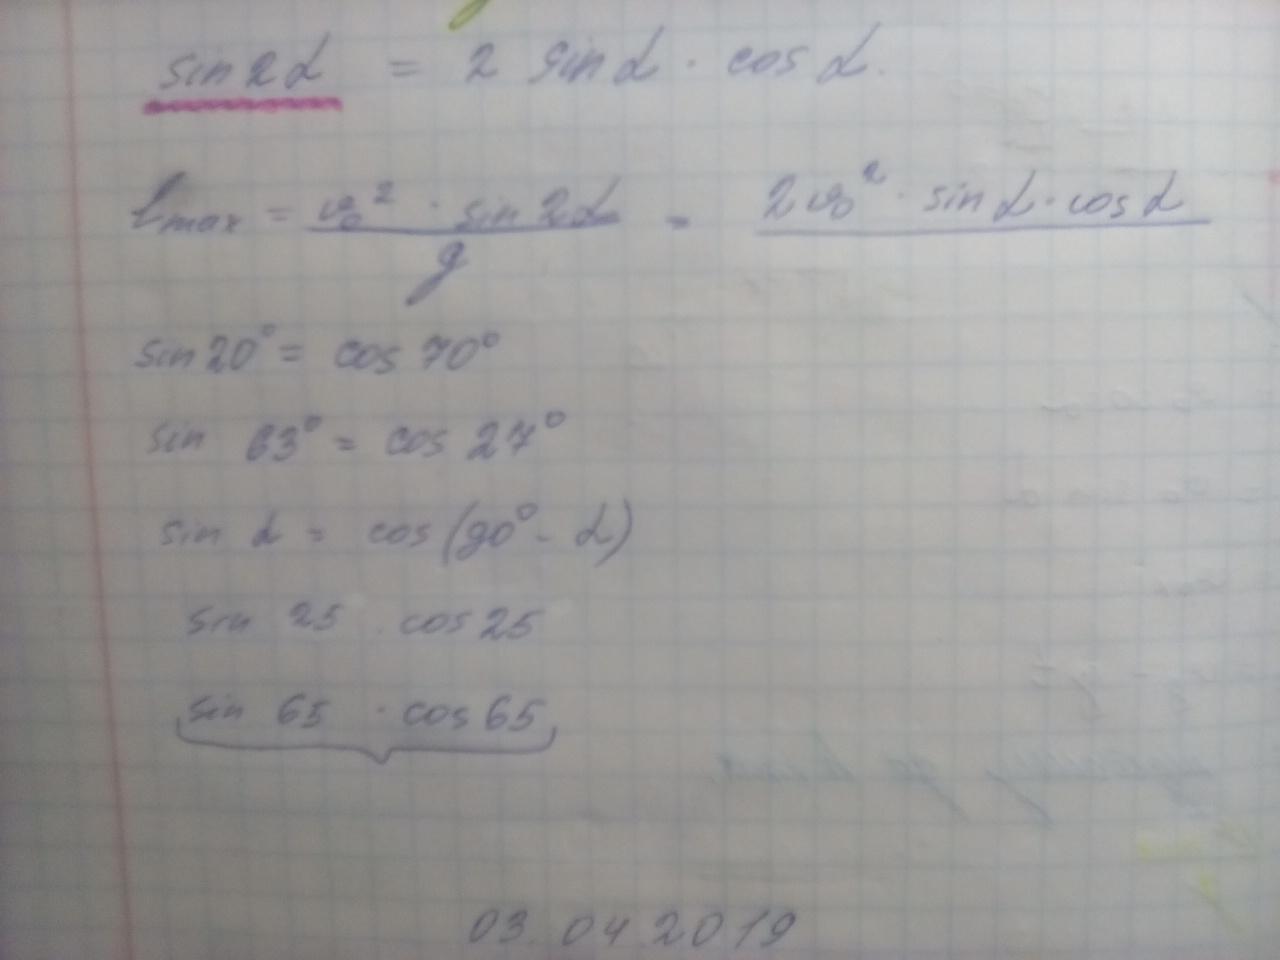 sin2α = 2 sinα · cosα.
lmax = v₀² · sin2α / g = 2v₀² · sinα · cosα
sin20° = cos 70°
sin 63° = cos 27°
sin α = cos(90° - α)
sin 25 · cos25
sin 65 · cos65
03.04.2019